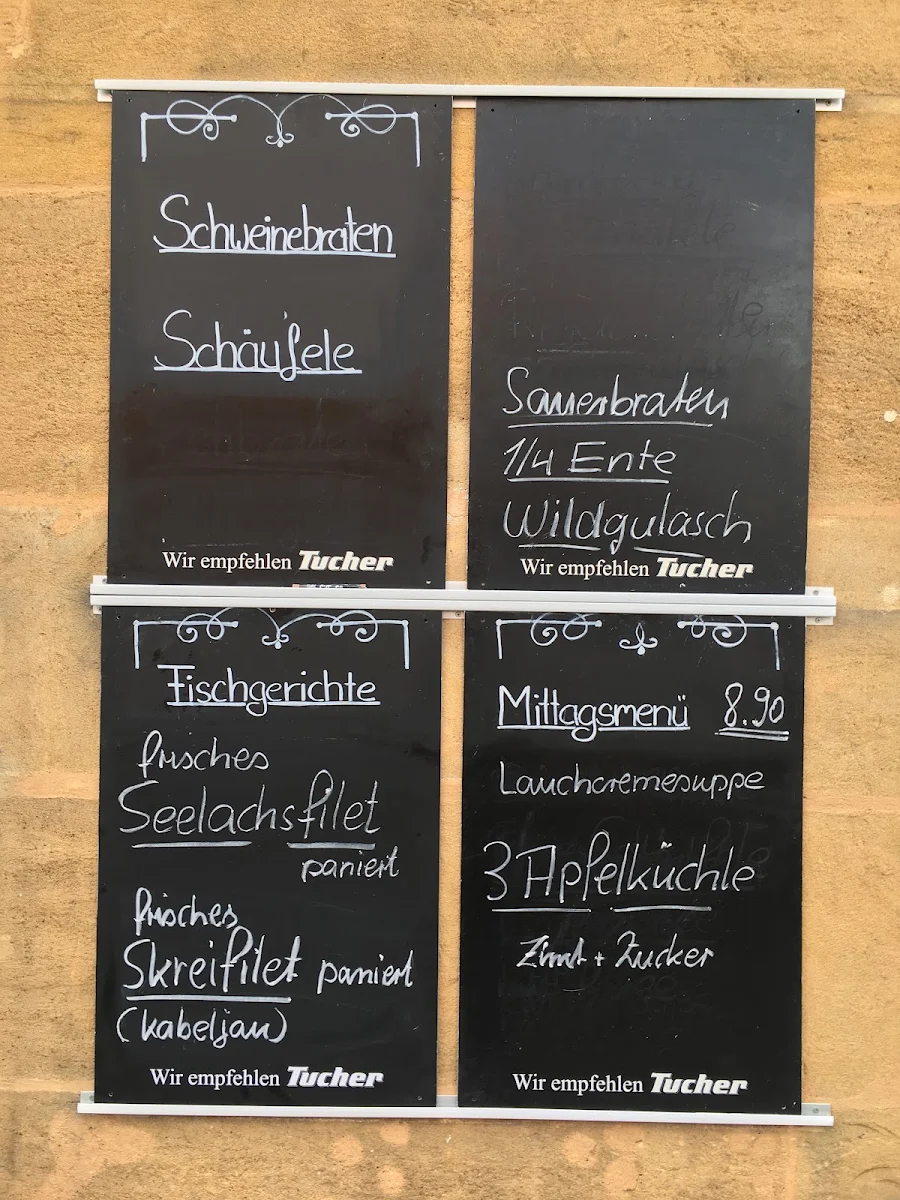 Schweinebraten
Schäufele
Wir empfehlen Tucher
Sauerbraten
1/4 Ente
Wildgulasch
Wir empfehlen Tucher
Fischgerichte
frisches
Seelachsfilet
paniert
frisches
Skreifilet paniert
(Kabeljau)
Wir empfehlen Tucher
Mittagsmenü 8.90
Lauchcremesuppe
3 Apfelküchle
Zimt + Zucker
Wir empfehlen Tucher